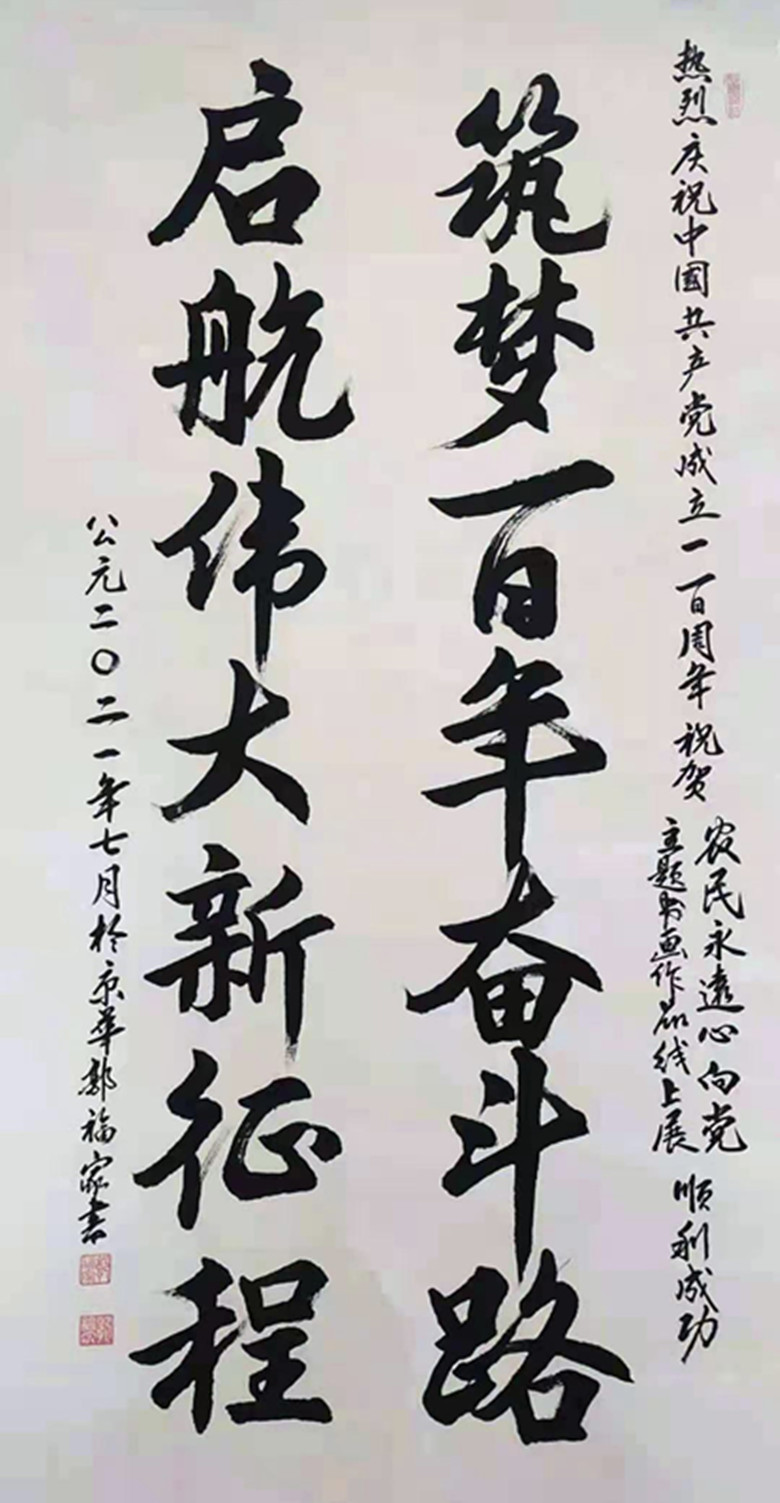 热烈庆祝中國共产党成立一百周年祝贺
农民永遠心向党
主题书画作品线上展
顺利成功
筑梦百年奋斗路
启航伟大新征程
公元二〇二一年七月於京华郭福家书